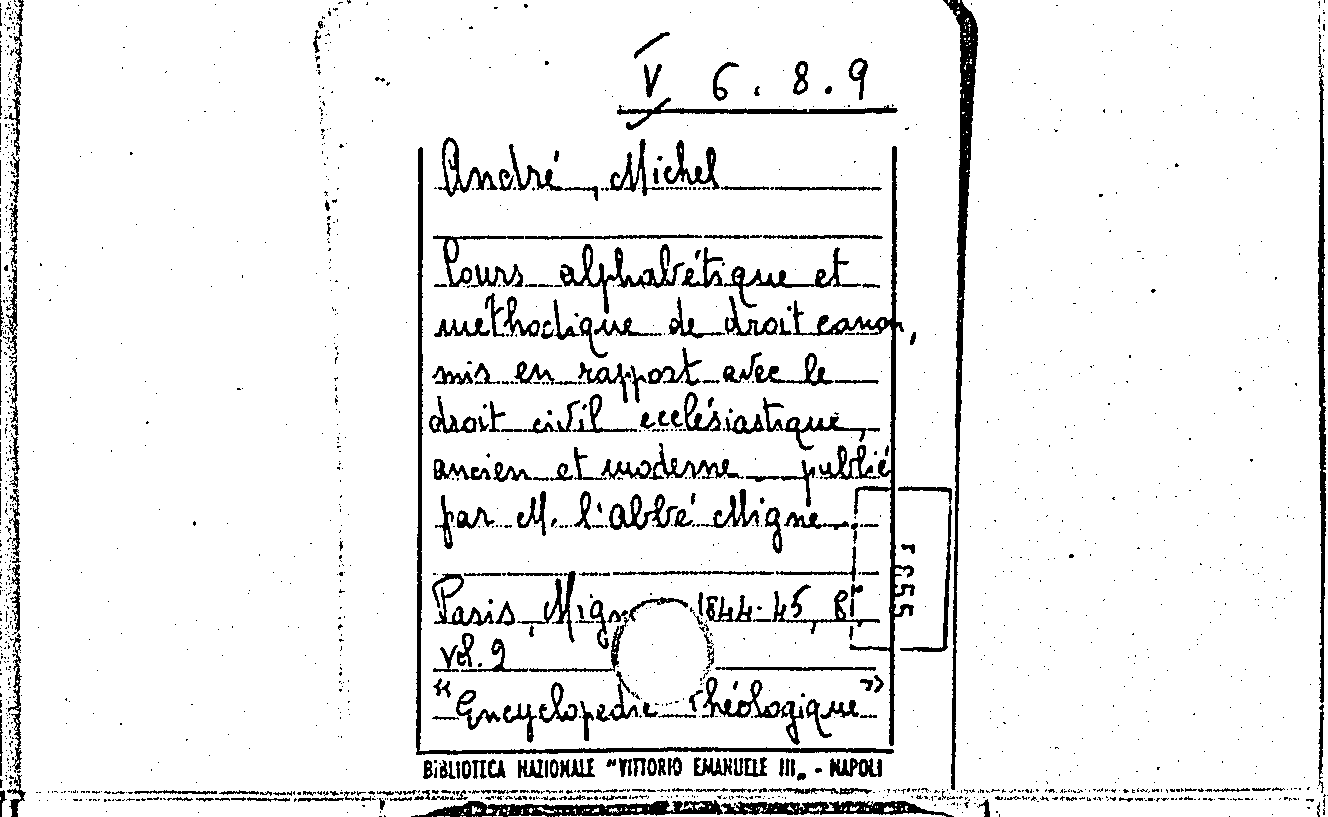 V 6.8.9
André, Michel
Cours alphabétique et
méthodique de droit canon,
mis en rapport avec le
droit civil ecclésiastique,
ancien et moderne publié
par M. l'abbé Migne...
Paris, Migne 1844-45, 8°,
vol. 2
"Encyclopedie théologique"
BIBLIOTECA NAZIONALE "VITTORIO EMANUELE III„ - NAPOLI